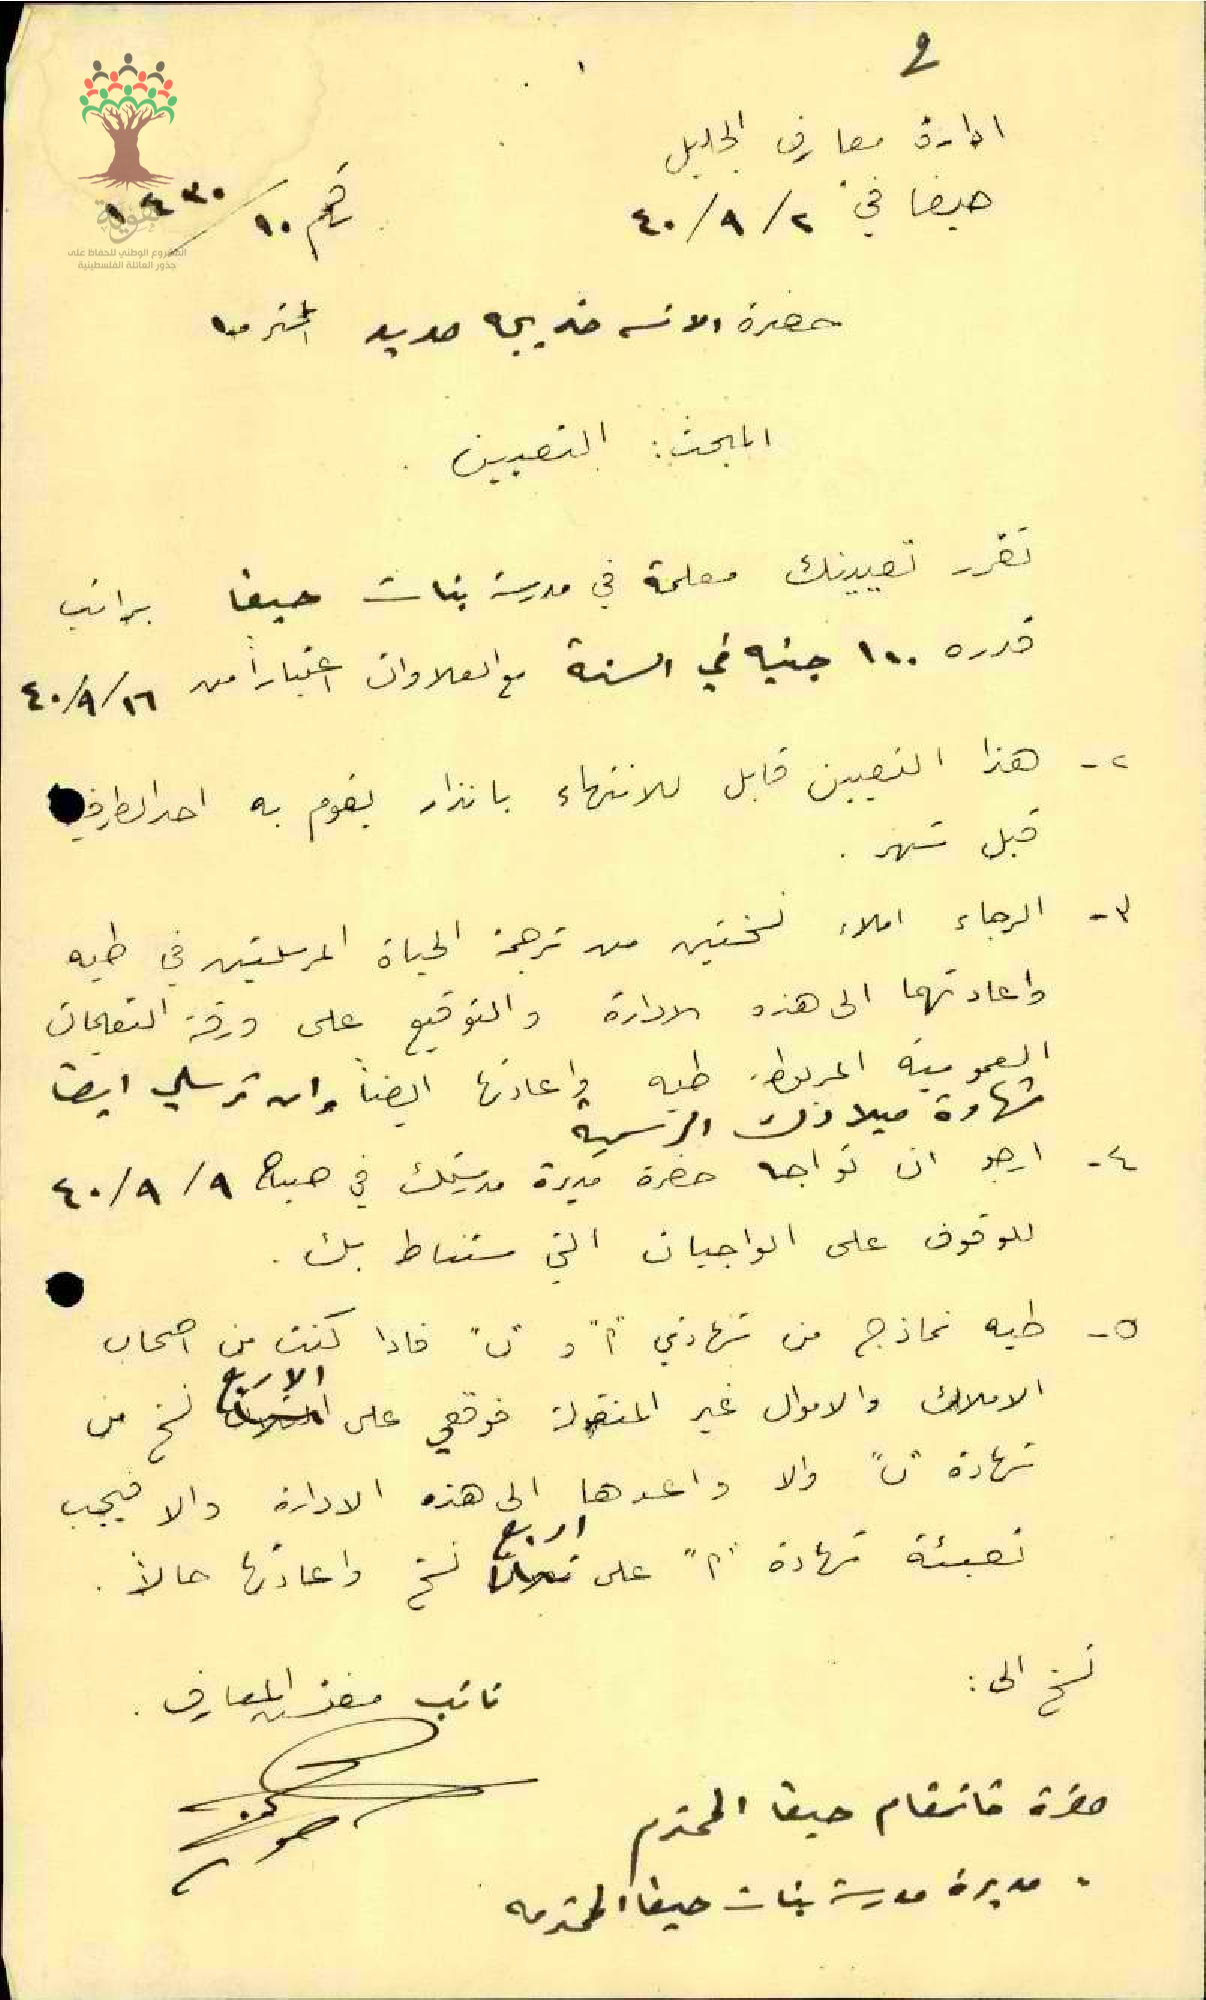 و
ادارة معارف الجليل
حيفا في ٢/٩/٤٠
رقم ١٠/١٤٣٠
هوية
المشروع الوطني للحفاظ على
جذور العائلة الفلسطينية
حضرة الانسه خديجه حديد المحترمه
المبحث: التعيين.
تقرر تعيينك معلمة في مدرسة بنات حيفا براتب
قدره ١٠٠ جنيه في السنة مع العلاوات اعتباراً من ١٦/٩/٤٠
٢- هذا التعيين قابل للانتهاء بانذار يقوم به احد الطرفين
قبل شهر.
٣- الرجاء املاء نسختين من ترجمة الحياة المرسلتين في طيه
واعادتهما الى هذه الادارة والتوقيع على ورقة التعليمات
العمومية المربوطة طيه واعادتها ايضاً وان ترسلي ايضا
شهادة ميلادك الرسمية
٤- ارجو ان تواجه حضرة مديرة مدرستك في صباح ٩/٩/٤٠
للوقوف على الواجبات التي ستناط بك.
٥- طيه نماذج من شهادتي "أ" و "ب" فاذا كنت من اصحاب
الاملاك والاموال غير المنقولة فوقعي على الاربع نسخ من
شهادة "ب" والا واعدها الى هذه الادارة والا فيجب
تعبئة شهادة "أ" على اربع نسخ واعادتها حالاً.
نسخ الى:
نائب مفتش المعارف.
حضرة قائمقام حيفا المحترم
" مديرة مدرسة بنات حيفا المحترمه